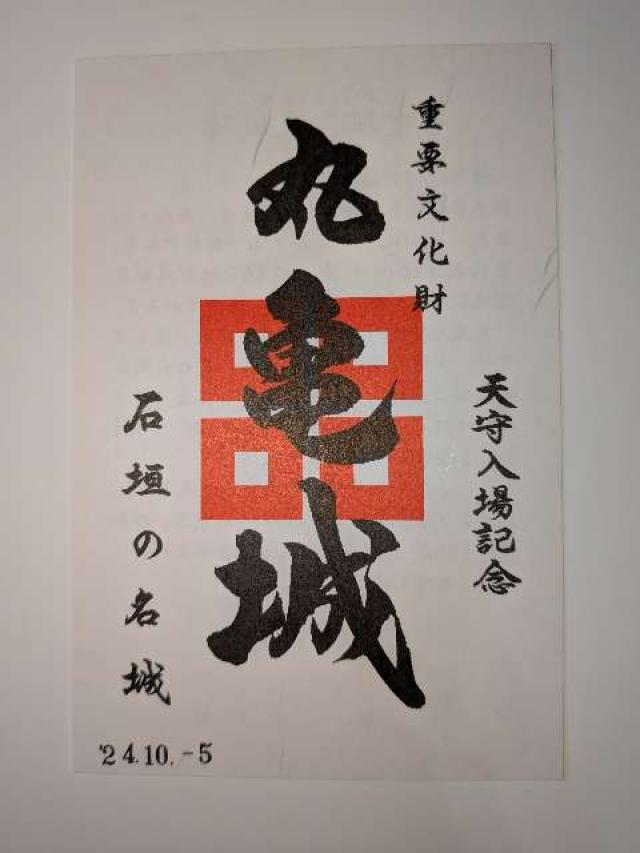 天守入場記念
重要文化財
丸亀城
石垣の名城
'24.10.-5